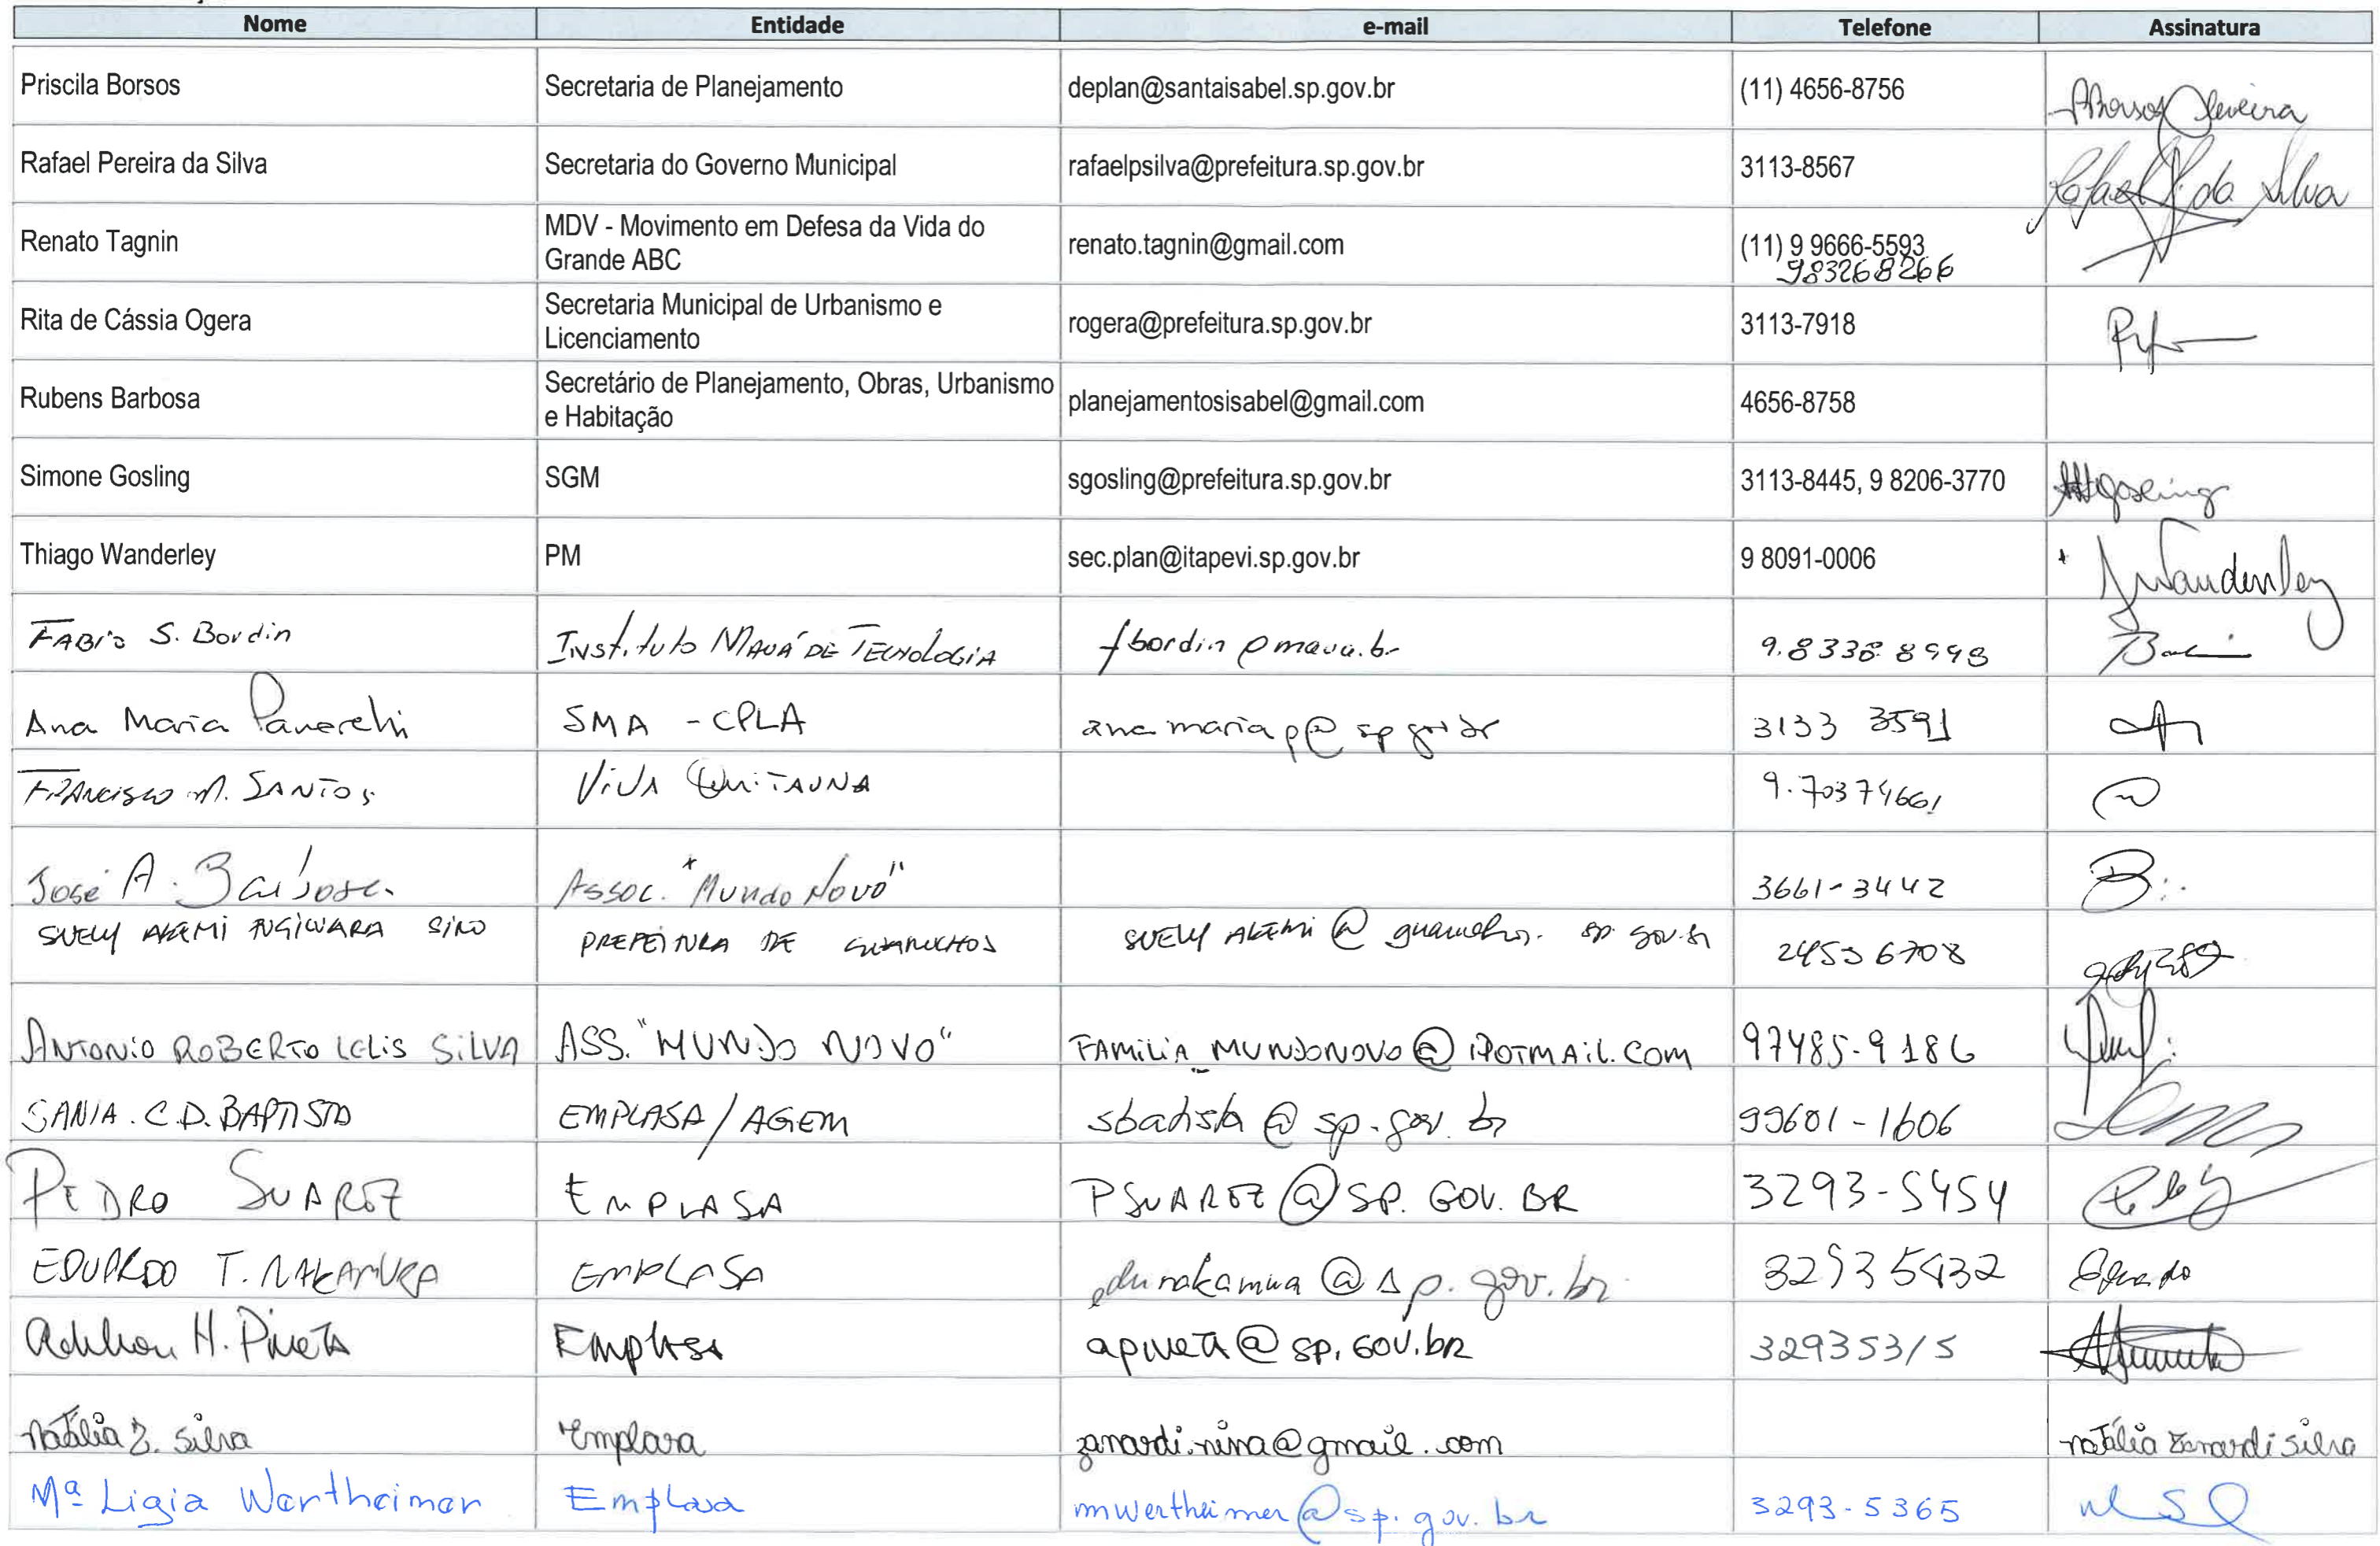 Nome Entidade e-mail Telefone Assinatura
Priscila Borsos Secretaria de Planejamento deplan@santaisabel.sp.gov.br (11) 4656-8756
Rafael Pereira da Silva Secretaria do Governo Municipal rafaelpsilva@prefeitura.sp.gov.br 3113-8567 Rafael P. da Silva
Renato Tagnin MDV - Movimento em Defesa da Vida do
Grande ABC renato.tagnin@gmail.com (11) 9 9666-5593
983268266
Rita de Cássia Ogera Secretaria Municipal de Urbanismo e
Licenciamento rogera@prefeitura.sp.gov.br 3113-7918
Rubens Barbosa Secretário de Planejamento, Obras, Urbanismo
e Habitação planejamentosisabel@gmail.com 4656-8758
Simone Gosling SGM sgosling@prefeitura.sp.gov.br 3113-8445, 9 8206-3770
Thiago Wanderley PM sec.plan@itapevi.sp.gov.br 9 8091-0006 Wanderley
FABIO S. Bordin INSTITUTO MAUÁ DE TECNOLOGIA fbordin@maua.br
Ana Maria SMA - CPLA anamariap@sp.gov.br 3133 3591
FRANCISCO M. SANTOS VIVA QUITAUNA 9.70374661
José A. Barbosa Assoc. "Mundo Novo" 3661-3442
SUELY AKEMI SUELY AKEMI@guarulhos.sp.gov.br
PREFEITURA DE GUARULHOS 24536708
ANTONIO ROBERTO LELIS SILVA ASS. "MUNDO NOVO" FAMILIA_MUNDONOVO@HOTMAIL.COM 97485-9186
SANIA.C.D.BAPTISTA EMPLASA/AGEM sbatista@sp.gov.br 99601-1606
PEDRO SUAREZ EMPLASA PSUAREZ@SP.GOV.BR 3293-5454
EDUARDO T. NAKAMURA EMPLASA edunakamura@sp.gov.br 32935432 Eduardo
H. Piveta Emplasa apiveta@sp.GOV.bR 32935315
Natália Z. Silva Emplasa zanardi.nina@gmail.com Natália Zanardi Silva
Mª Ligia Wertheimer Emplasa mwertheimer@sp.gov.br 3293-5365